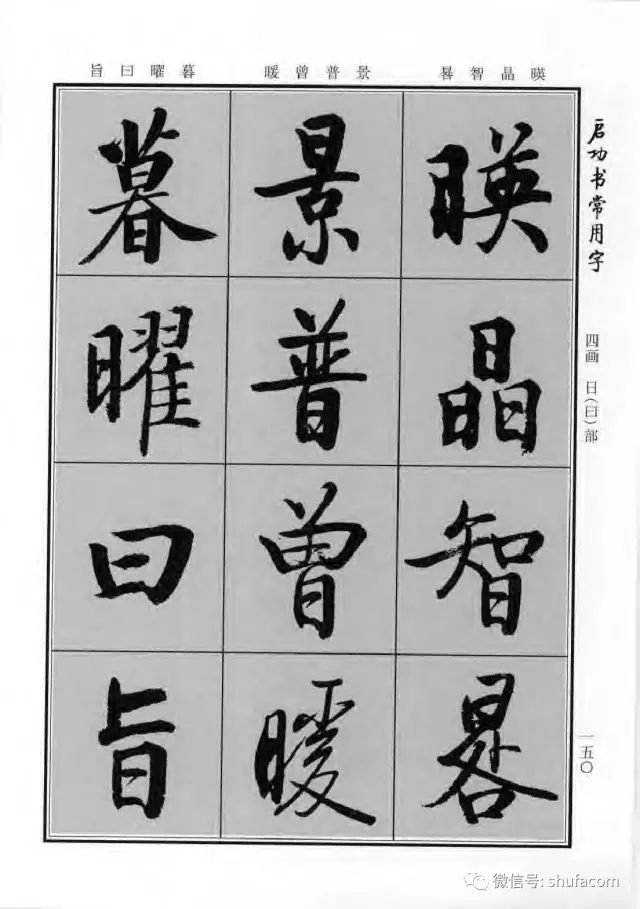 启功书常用字
四画 日(曰)部
一五〇
暎晶智晷
景普曾暖
暮曜曰旨
暎晶智晷
景普曾暖
暮曜曰旨
微信号: shufacom